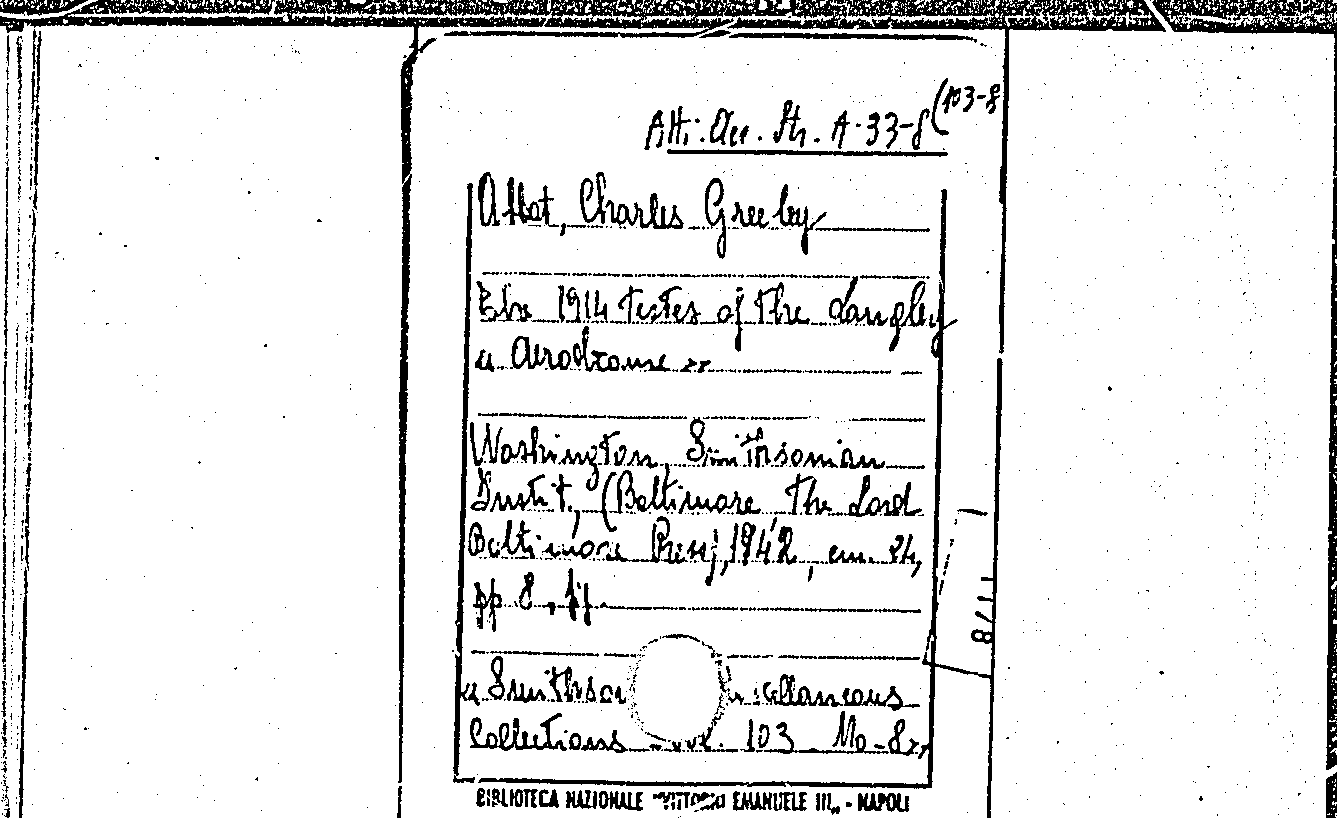 Atti. Acc. Str. A-33-8 (103-8
Abbot, Charles Greeley
The 1914 testes of the Langley
« Aerodrome »
Washington, Smithsonian
Instit., (Baltimore The Lord
Baltimore Press), 1942, cm. 24,
pp 8, fig.
« Smithson scellaneous
Collections vol. 103 No-8»
8/11
BIBLIOTECA NAZIONALE "VITTORIO EMANUELE III„ - NAPOLI